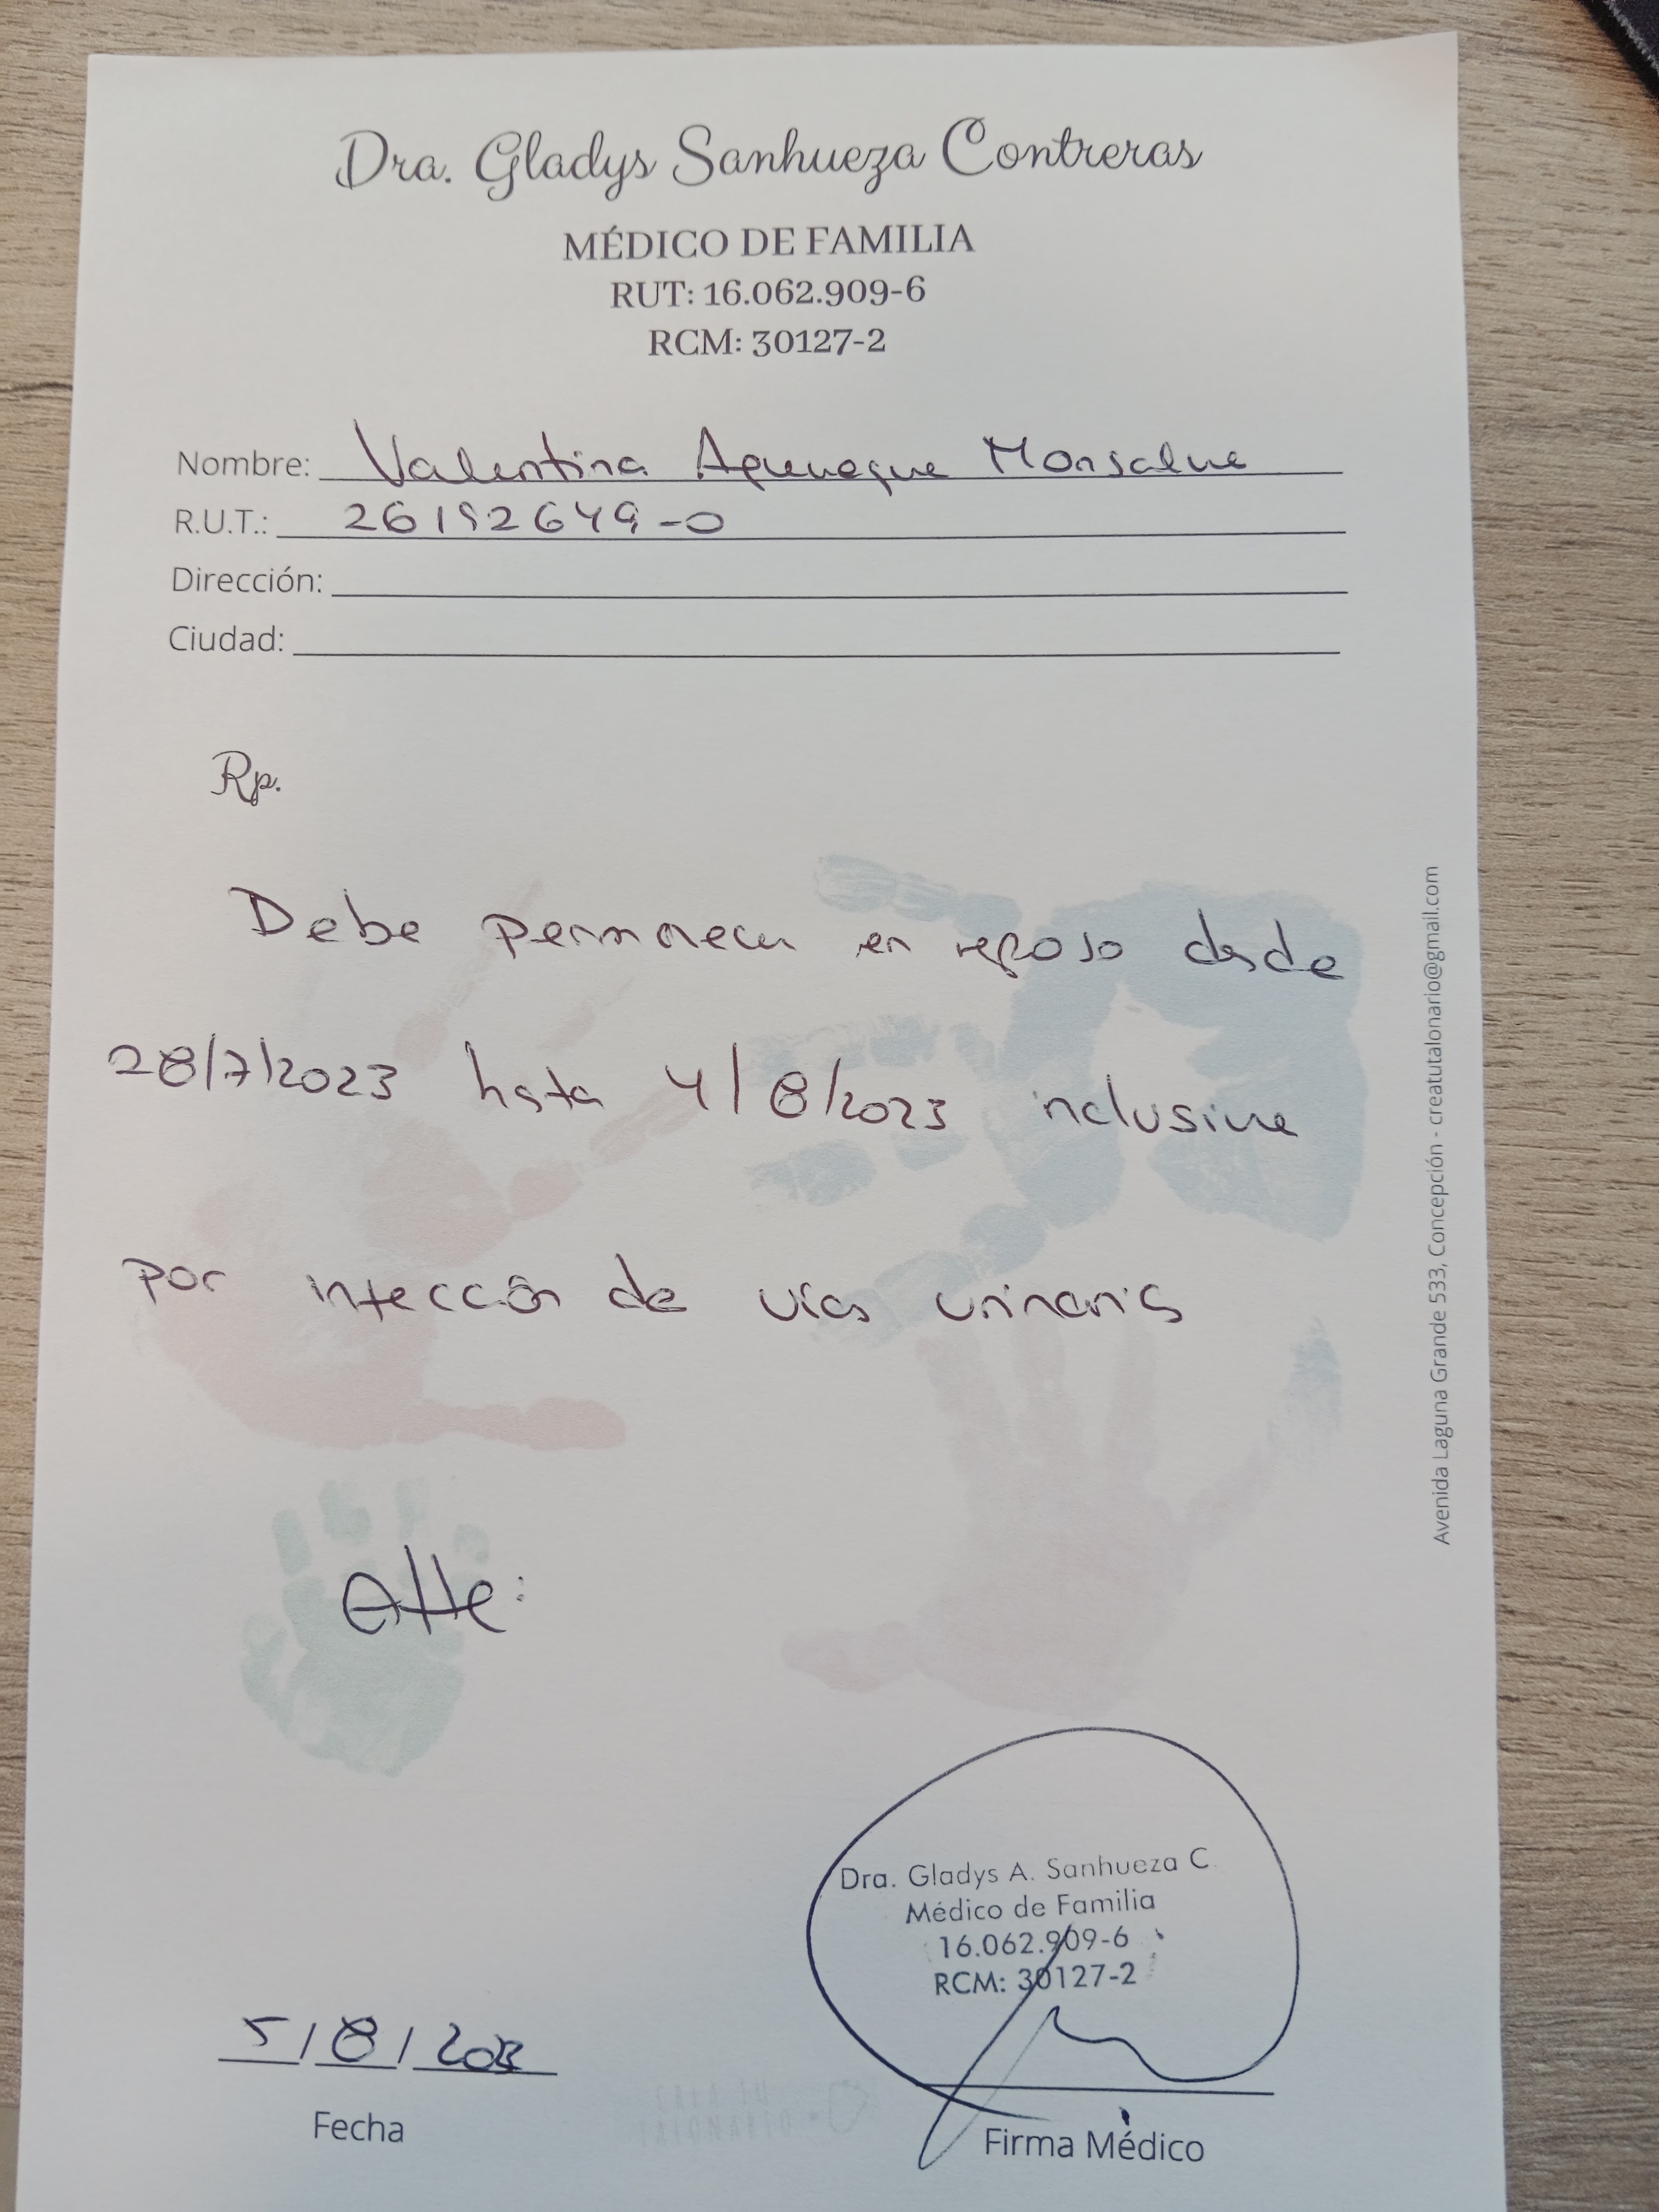 Dra. Gladys Sanhueza Contreras
MÉDICO DE FAMILIA
RUT: 16.062.909-6
RCM: 30127-2
Nombre: Valentina Monsalve
R.U.T.: 26192649-0
Dirección:
Ciudad:
Rp.
Debe permanecer en reposo desde
28/7/2023 hasta 4/8/2023 inclusive
por infección de vías urinarias
Atte:
Dra. Gladys A. Sanhueza C.
Médico de Familia
16.062.909-6
RCM: 30127-2
5/8/2023
Fecha
Firma Médico
Avenida Laguna Grande 533, Concepción - creatutalonario@gmail.com